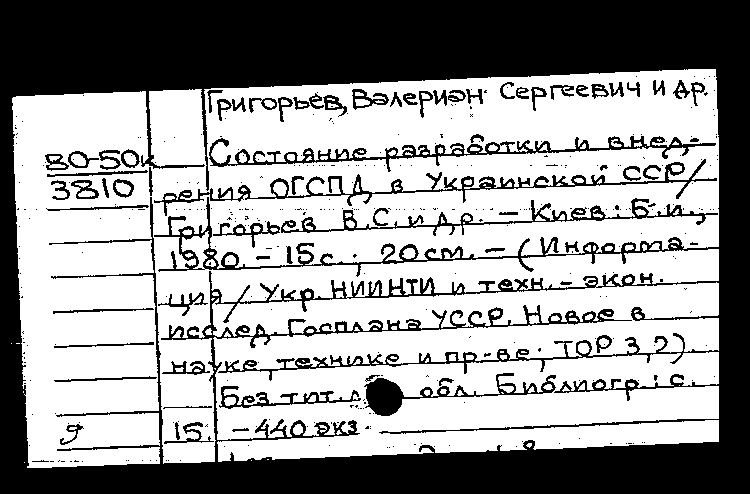 Григорьев, Валериан Сергеевич и др.
80-50к Состояние разработки и внед-
3810 рения ОГСПД в Украинской ССР/
Григорьев В.С. и др. – Киев: Б.и.,
1980. – 15 с.; 20 см. – (Информа-
ция / Укр. НИИНТИ и техн.-экон.
исслед. Госплана УССР. Новое в
науке, технике и пр-ве; ТОР 3,2).
Без тит. л. обл. Библиогр.: с.
15. – 440 экз.